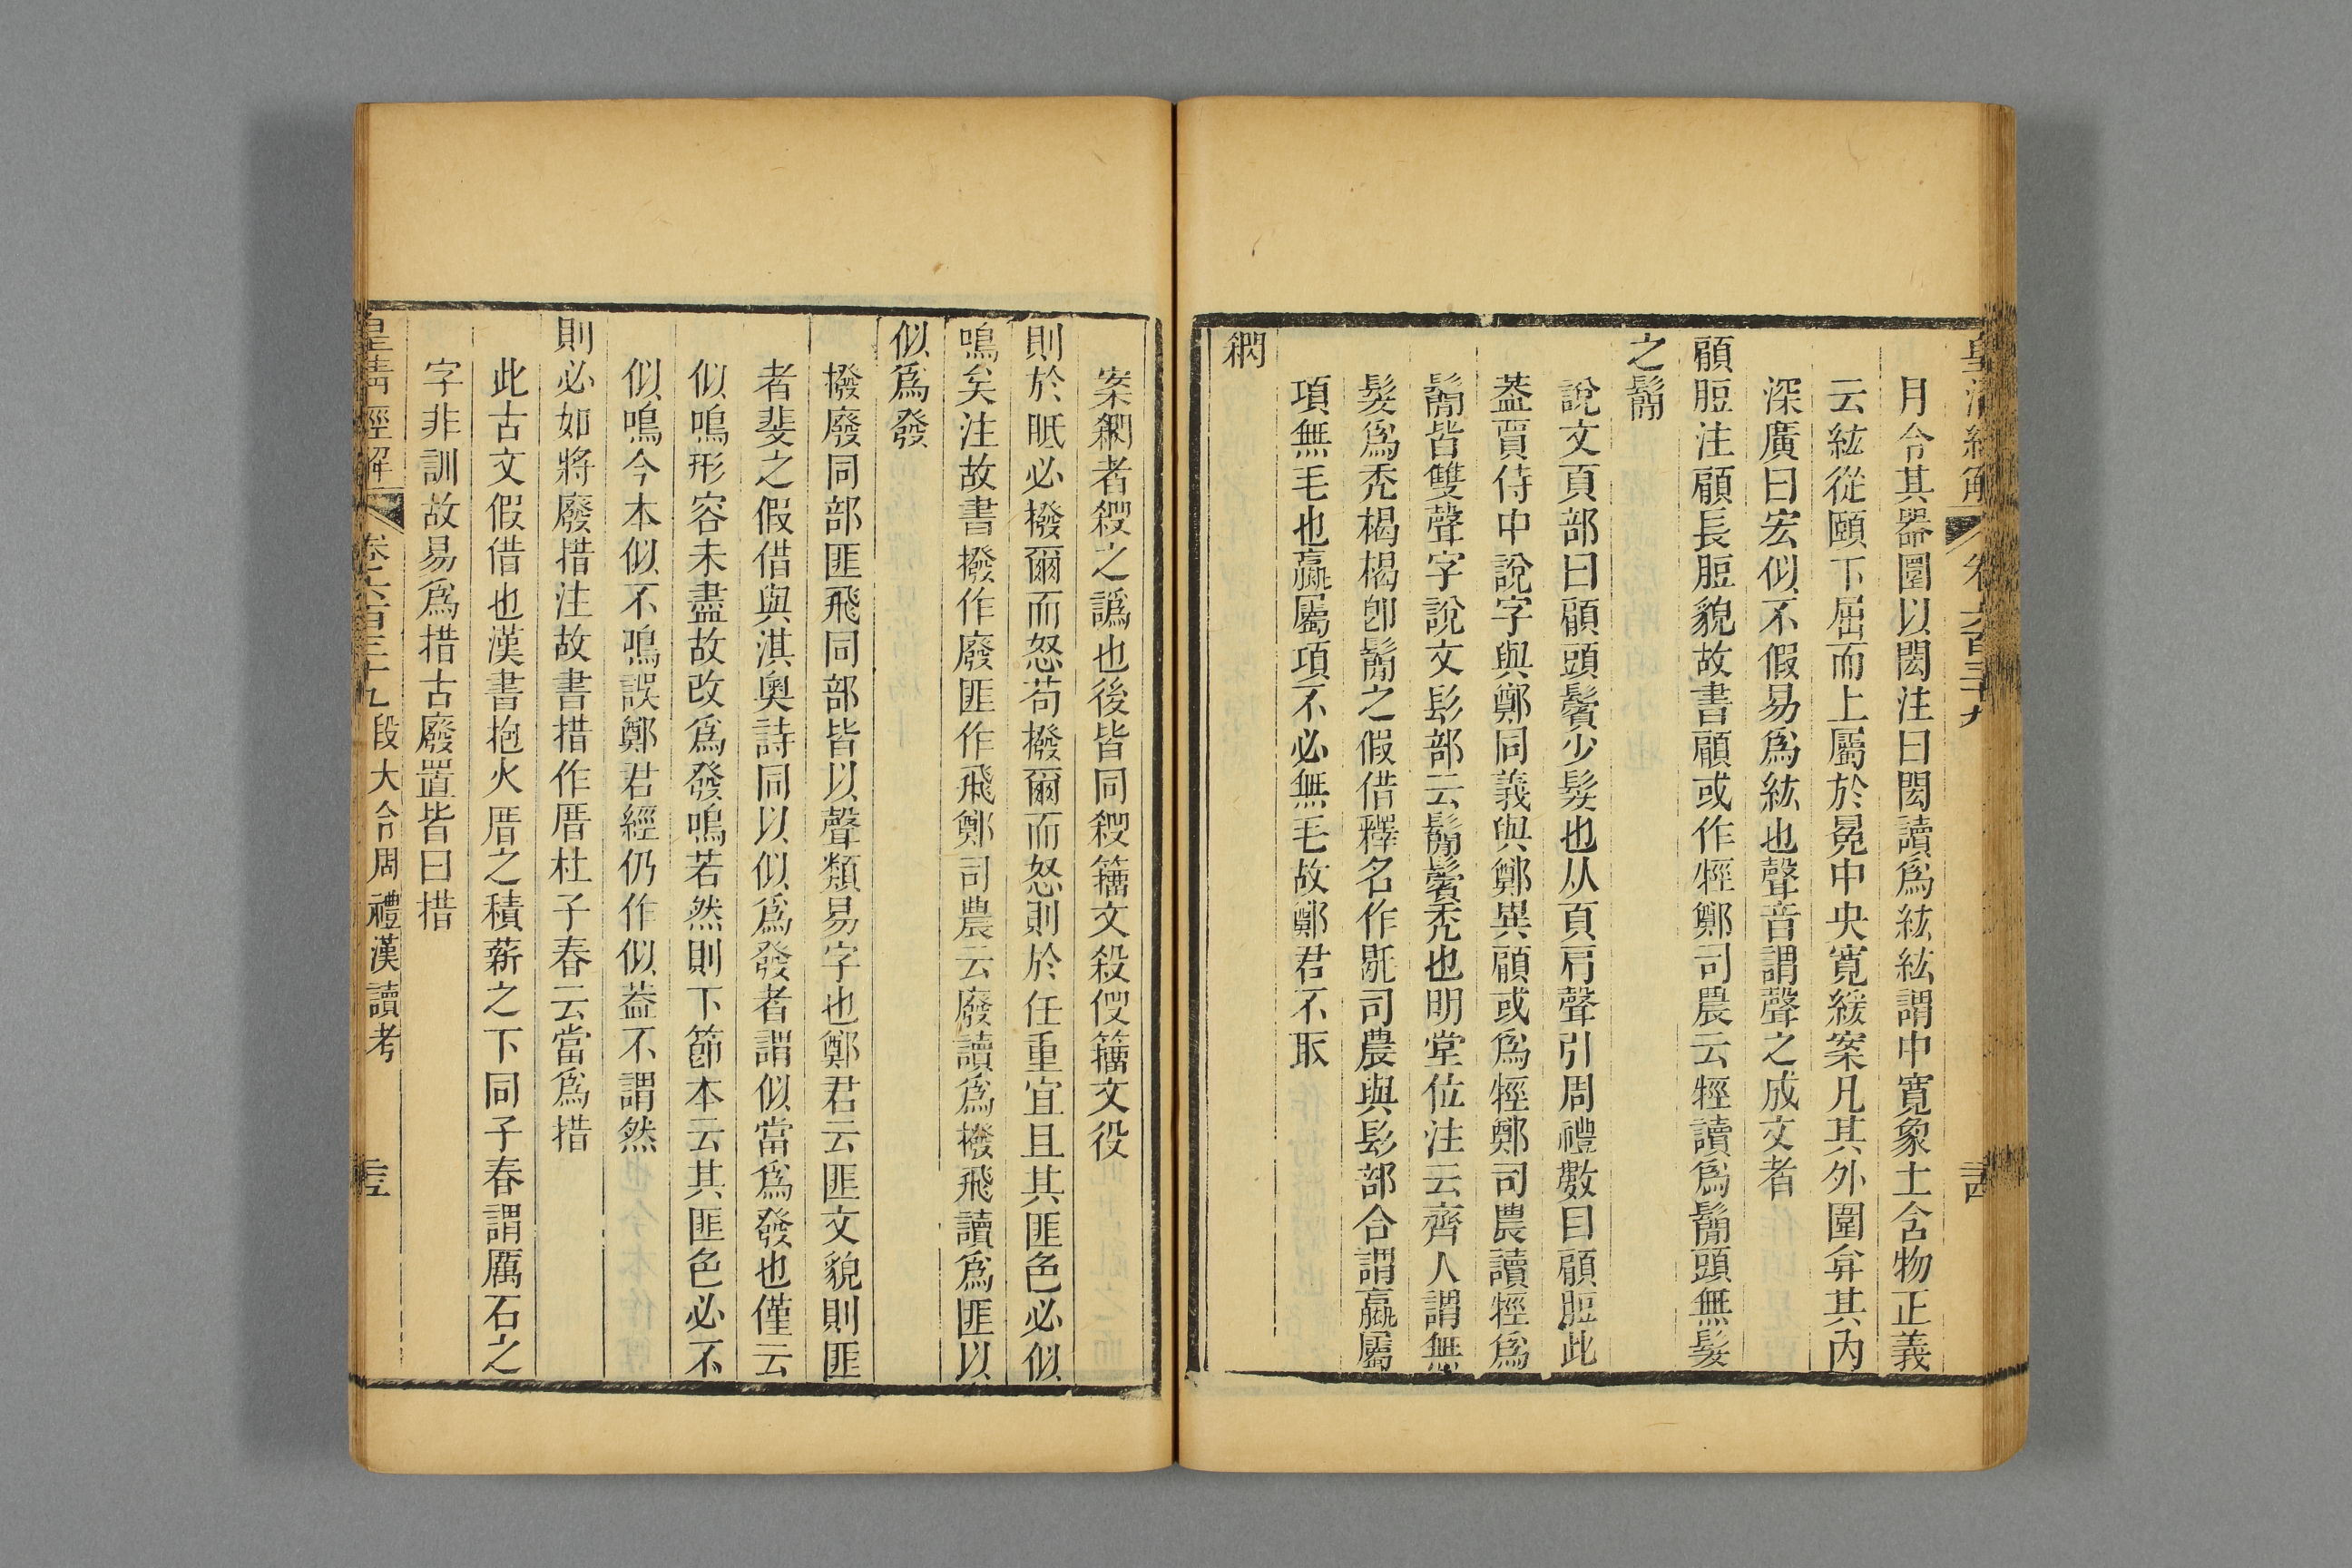 皇清經解 卷六百三十九 三四
月令其器圜以閎注曰閎讀爲紘紘謂中寬象土含物正義
云紘從頤下屈而上屬於冕中央寬緩案凡其外圍弇其內
深廣曰宏似不假易爲紘也聲音謂聲之成文者
顧脰注顧長脰貌故書顧或作牼鄭司農云牼讀爲鬜頭無髮
之鬜
說文頁部曰顧頭鬢少髮也从頁肩聲引周禮數目顧脰此
葢賈侍中說字與鄭同義與鄭異顧或爲牼鄭司農讀牼爲
鬜皆雙聲字說文髟部云鬜鬢禿也明堂位注云齊人謂無
髮爲禿楬楬卽鬜之假借釋名作毼司農與髟部合謂臝屬
項無毛也臝屬項不必無毛故鄭君不取
䋞
案䋞者緵之譌也後皆同緵籒文殺伇籒文役
則於眂必撥爾而怒苟撥爾而怒則於任重宜且其匪色必似
鳴矣注故書撥作廢匪作飛鄭司農云廢讀爲撥飛讀爲匪以
似爲發
撥廢同部匪飛同部皆以聲類易字也鄭君云匪文貌則匪
者斐之假借與淇奧詩同以似爲發者謂似當爲發也僅云
似鳴形容未盡故改爲發鳴若然則下節本云其匪色必不
似鳴今本似不鳴誤鄭君經仍作似葢不謂然
則必如將廢措注故書措作厝杜子春云當爲措
此古文假借也漢書抱火厝之積薪之下同子春謂厲石之
字非訓故易爲措古廢置皆曰措
皇清經解 卷六百三十九 段大令周禮漢讀考 三五